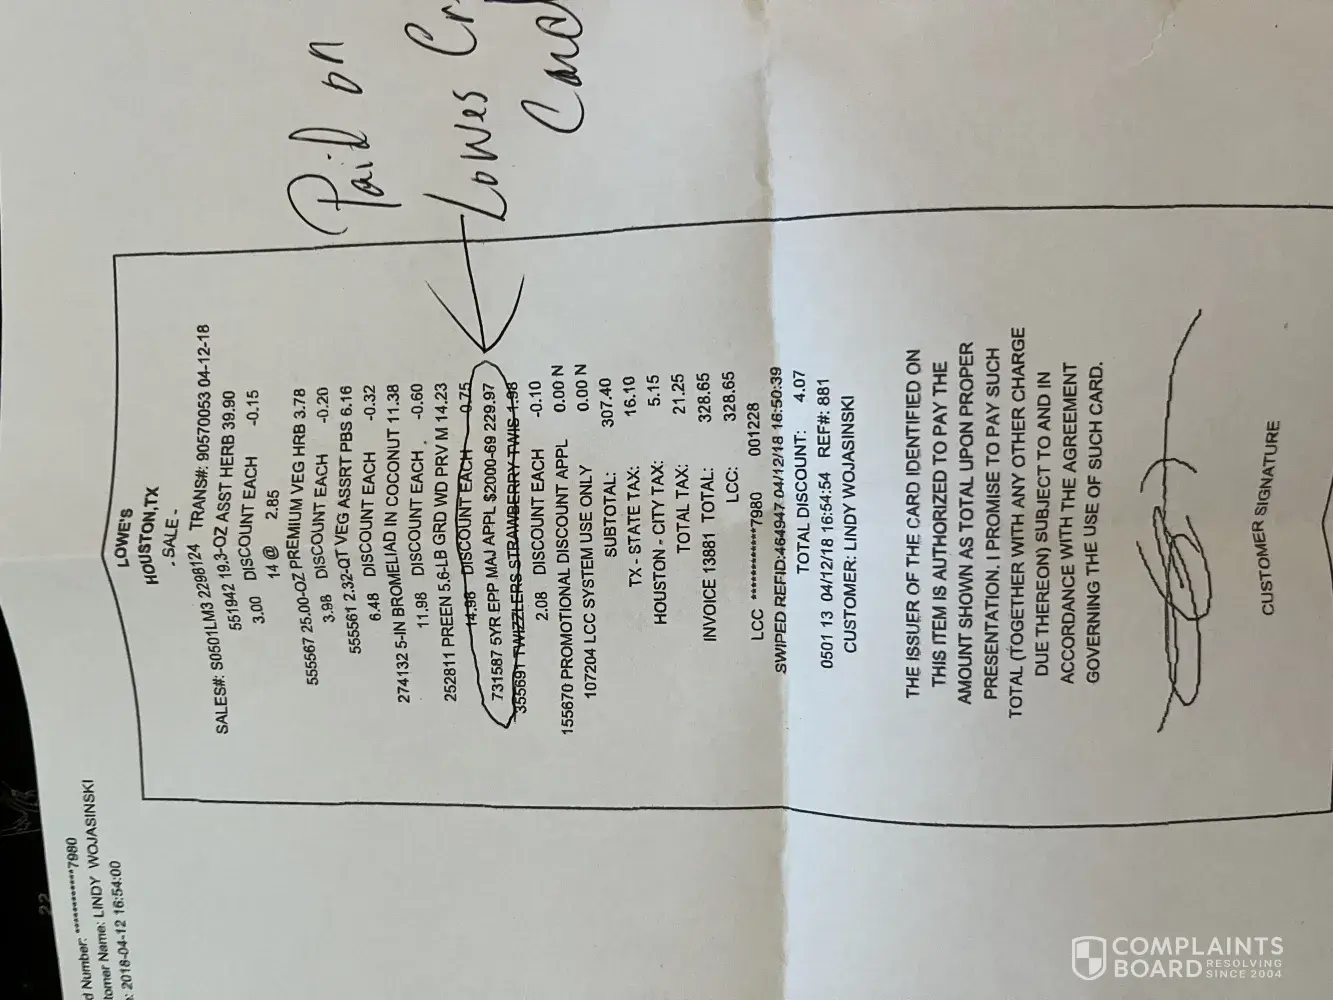 Paid on
Lowes Cr
Card
LOWE'S
HOUSTON,TX
- SALE -
SALES#: S0501LM3 2298124 TRANS#: 90570053 04-12-18
551942 19.3-OZ ASST HERB 39.90
3.00 DISCOUNT EACH -0.15
14 @ 2.85
555567 25.00-OZ PREMIUM VEG HRB 3.78
3.98 DISCOUNT EACH -0.20
555561 2.32-QT VEG ASSRT PBS 6.16
6.48 DISCOUNT EACH -0.32
274132 5-IN BROMELIAD IN COCONUT 11.38
11.98 DISCOUNT EACH -0.60
252811 PREEN 5.6-LB GRD WD PRV M 14.23
14.98 DISCOUNT EACH -0.75
731587 5YR EPP MAJ APPL $2000-69 229.97
355691 TWIZZLERS STRAWBERRY TWIS 1.98
2.08 DISCOUNT EACH -0.10
155670 PROMOTIONAL DISCOUNT APPL 0.00 N
107204 LCC SYSTEM USE ONLY 0.00 N
SUBTOTAL: 307.40
TX - STATE TAX: 16.10
HOUSTON - CITY TAX: 5.15
TOTAL TAX: 21.25
INVOICE 13881 TOTAL: 328.65
LCC: 328.65
LCC ************7980 001228
SWIPED REFID:464947 04/12/18 16:50:39
TOTAL DISCOUNT: 4.07
0501 13 04/12/18 16:54:54 REF#: 881
CUSTOMER: LINDY WOJASINSKI
THE ISSUER OF THE CARD IDENTIFIED ON
THIS ITEM IS AUTHORIZED TO PAY THE
AMOUNT SHOWN AS TOTAL UPON PROPER
PRESENTATION. I PROMISE TO PAY SUCH
TOTAL (TOGETHER WITH ANY OTHER CHARGE
DUE THEREON) SUBJECT TO AND IN
ACCORDANCE WITH THE AGREEMENT
GOVERNING THE USE OF SUCH CARD.
CUSTOMER SIGNATURE
d Number: ************7980
tomer Name: LINDY WOJASINSKI
: 2018-04-12 16:54:00
22
COMPLAINTS
BOARD RESOLVING
SINCE 2004